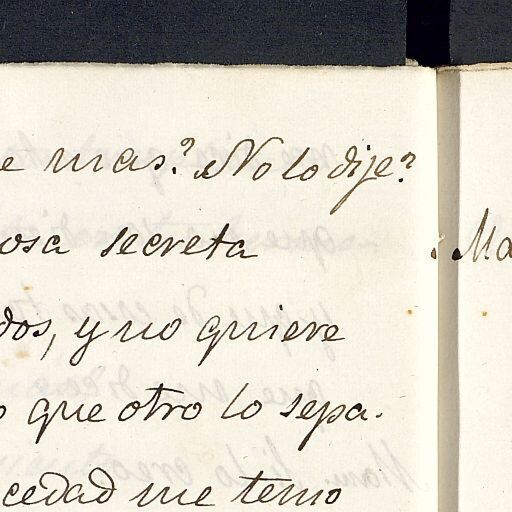 e mas? No lo dije?
osa secreta
dos, y no quiere
o que otro lo sepa.
cedad me temo
Ma